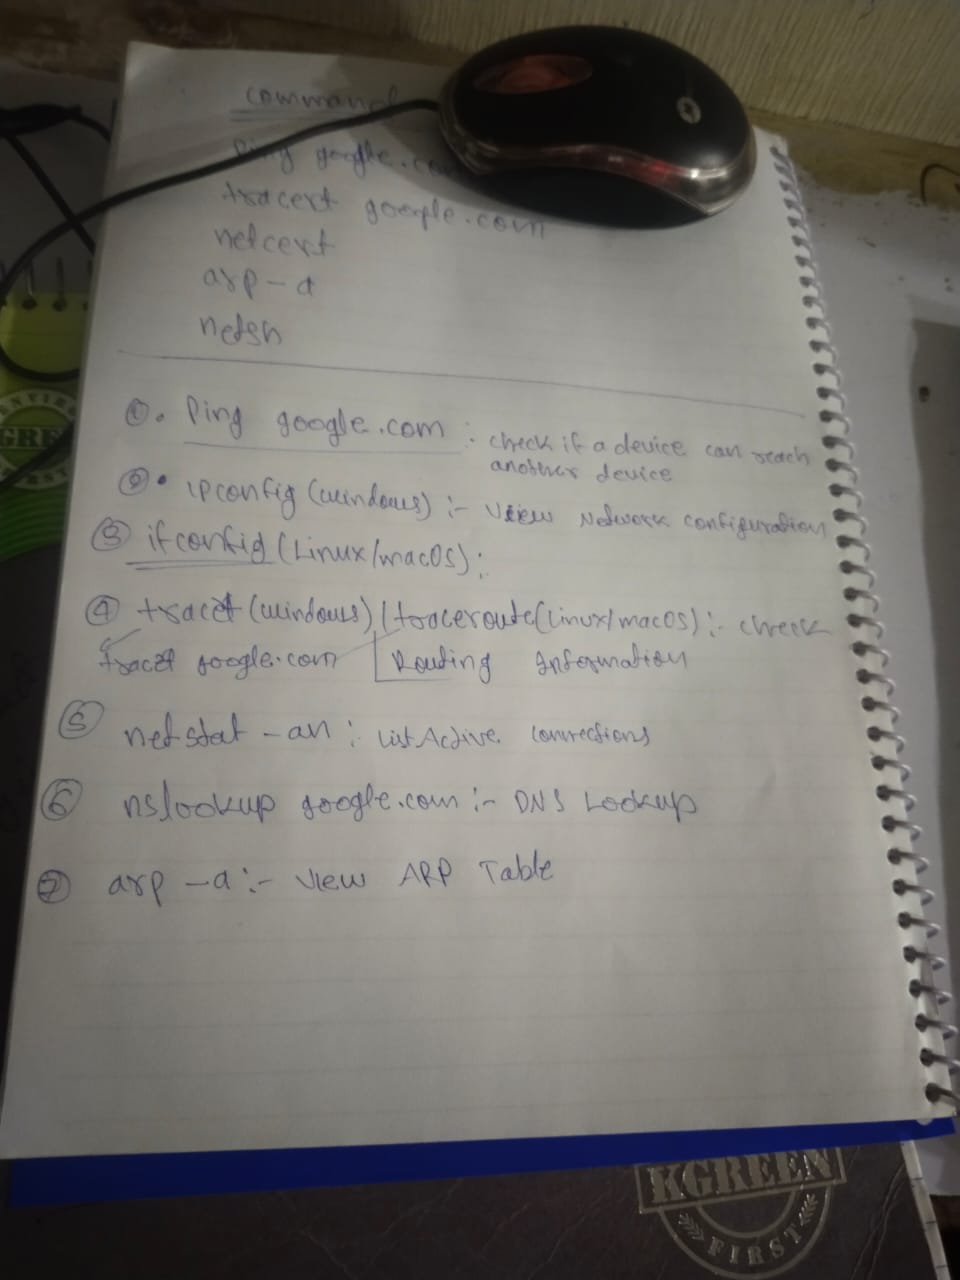 command
Ping google.co
tracert google.com
netcert
arp - a
netsh
①. Ping google.com : check if a device can reach
another device
②. ipconfig (windows) :- View Network configuration
③ ifconfig (Linux/macOS);
④ tracet (windows) / traceroute (Linux/macOS) :- check
tracet google.com Routing Information
⑤ netstat - an : List Active connections
⑥ nslookup google.com :- DNS Lookup
⑦ arp - a :- View ARP Table
KGREEN
FIRST